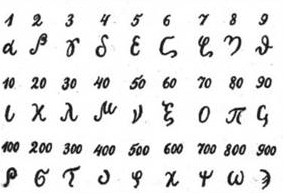 1 2 3 4 5 6 7 8 9
α β γ δ ε ς ζ η θ
10 20 30 40 50 60 70 80 90
ι κ λ μ ν ξ ο π ς
100 200 300 400 500 600 700 800 900
ρ σ τ υ φ χ ψ ω ϡ